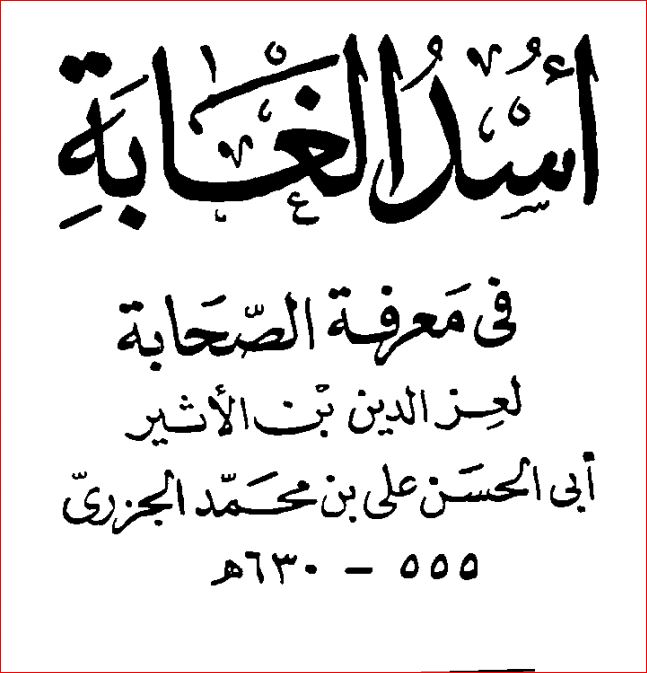 أُسْدُ الغَابَةِ
فى مَعرفة الصّحَابة
لعِز الدين بْن الأثير
أبى الحسَن على بن محمّد الجزرىّ
٥٥٥ - ٦٣٠هـ